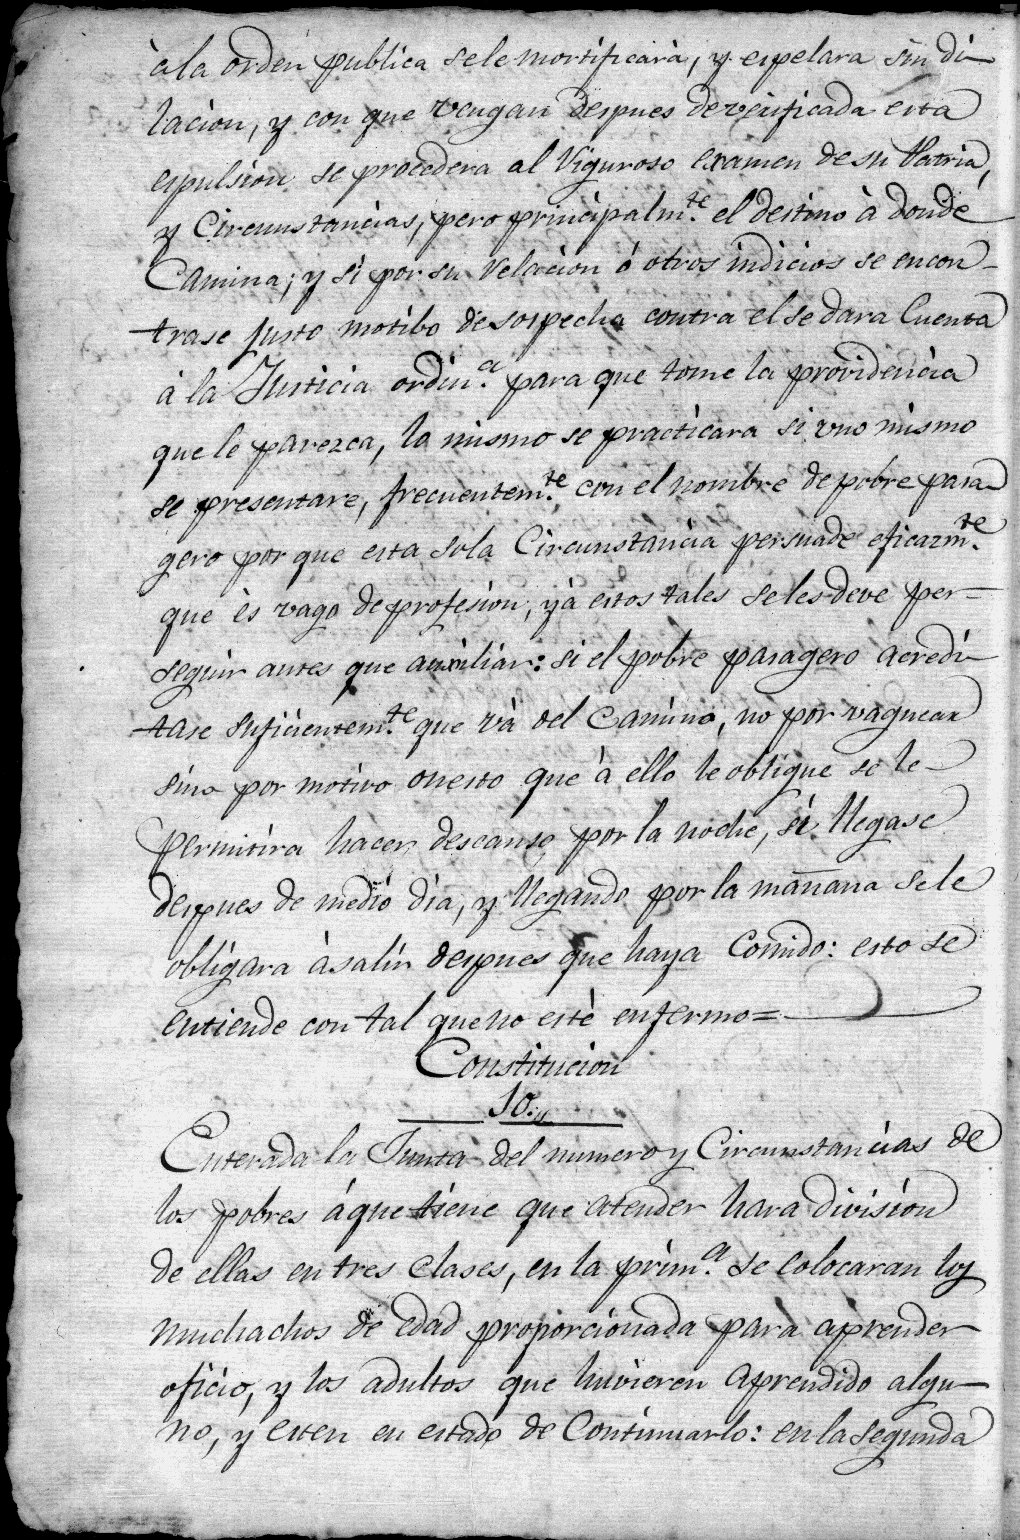 à la orden publica sele mortificarà, y espelara sin di-
lacion, y con que vengan despues de verificada esta
espulsion se procedera al Viguroso examen de su Patria,
y Circunstancias, pero principalm.te el destino à donde
Camina; y si por su Relacion ó otros indicios se encon-
trase justo motibo de sospecha contra el se dara Cuenta
à la Justicia ordin.a para que tome la providencia
que le parezca, lo mismo se practicara si uno mismo
se presentare, frecuentem.te con el nombre de pobre pasa-
gero por que esta sola Circunstancia persuade eficazm.te
que ès vago de profesion, y à estos tales se les deve per=
seguir antes que auxiliar: si el pobre pasagero acredi-
tase suficientem.te que và del Camino, no por vaguear
sino por motivo onesto que à ello le obligue se le-
permitira hacer descanso por la noche, si llegase
despues de medio dia, y llegando por la mañana sele
obligara àsalir despues que haya Comido: esto se
entiende con tal que no estè enfermo=
Constitucion
10.
Enterada la Junta del numero y Circunstancias de
los pobres áque tiene que atender hara division
de ellas en tres clases, en la prim.a se colocaran los
muchachos de edad proporcionada para aprender
oficio, y los adultos que huvieren aprendido algu-
no, y esten en estado de Continuarlo: en la segunda